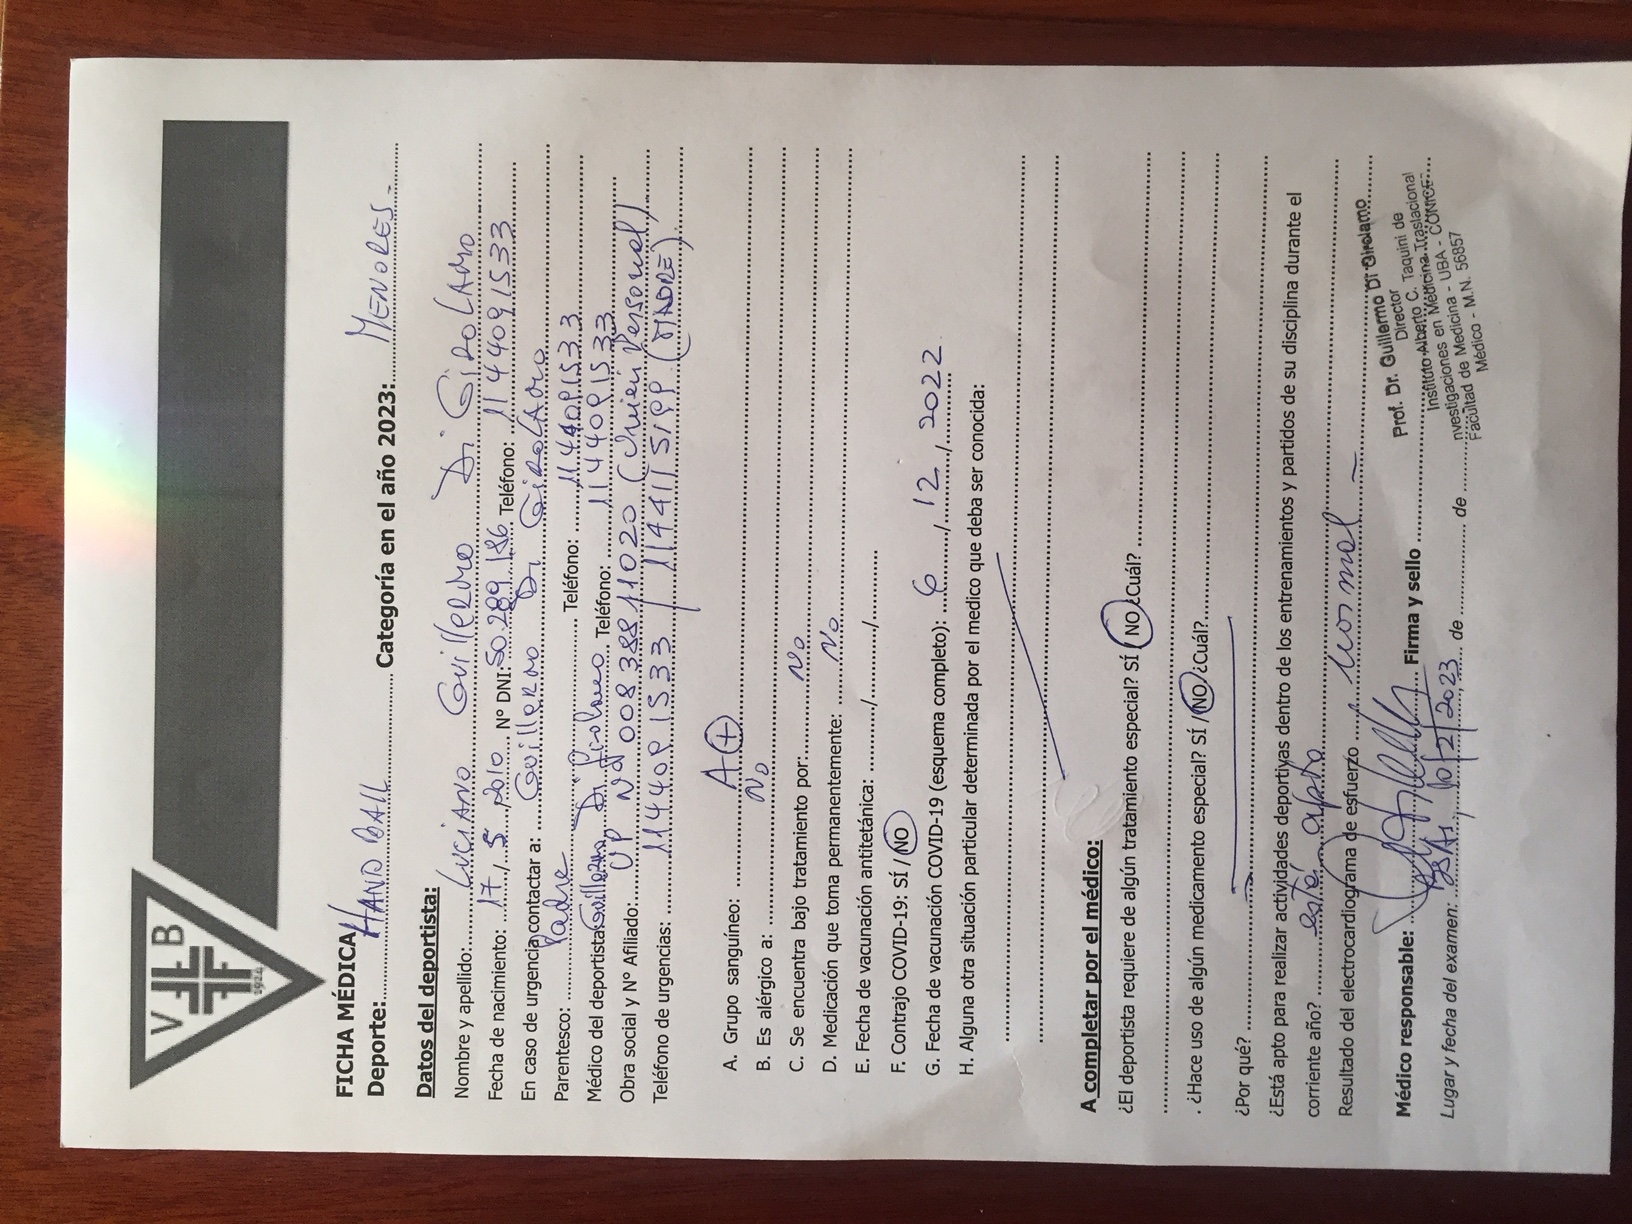 V B
1924
FICHA MÉDICA
Deporte: HAND BALL Categoría en el año 2023: MENORES.-
Datos del deportista:
Nombre y apellido: LUCIANO GUILLERMO DI GIROLAMO
Fecha de nacimiento: 17 / 5 / 2010 Nº DNI: 50.289.186 Teléfono: 1144091533
En caso de urgencia contactar a: GUILLERMO DI GIROLAMO
Parentesco: Padre Teléfono: 1144091533
Médico del deportista Guillermo Di Girolamo Teléfono: 1144091533
Obra social y Nº Afiliado: UP Nº 00838811020 (Unión Personal)
Teléfono de urgencias: 1144091533 / 1144115199 (MADRE)
A. Grupo sanguíneo: A (+)
B. Es alérgico a: No
C. Se encuentra bajo tratamiento por: No
D. Medicación que toma permanentemente: No
E. Fecha de vacunación antitetánica: ......../......../........
F. Contrajo COVID-19: SÍ / NO
G. Fecha de vacunación COVID-19 (esquema completo): 6 / 12 / 2022
H. Alguna otra situación particular determinada por el medico que deba ser conocida:
A completar por el médico:
¿El deportista requiere de algún tratamiento especial? SÍ / NO ¿Cuál?
. ¿Hace uso de algún medicamento especial? SÍ / NO ¿Cuál?
¿Por qué?
¿Está apto para realizar actividades deportivas dentro de los entrenamientos y partidos de su disciplina durante el
corriente año? está apto
Resultado del electrocardiograma de esfuerzo normal -
Médico responsable: Firma y sello
Prof. Dr. Guillermo Di Girolamo
Director
Instituto Alberto C. Taquini de
Investigaciones en Medicina Traslacional
Facultad de Medicina - UBA - CONICET
Médico - M.N. 56857
Lugar y fecha del examen: 10/2/2023 de de